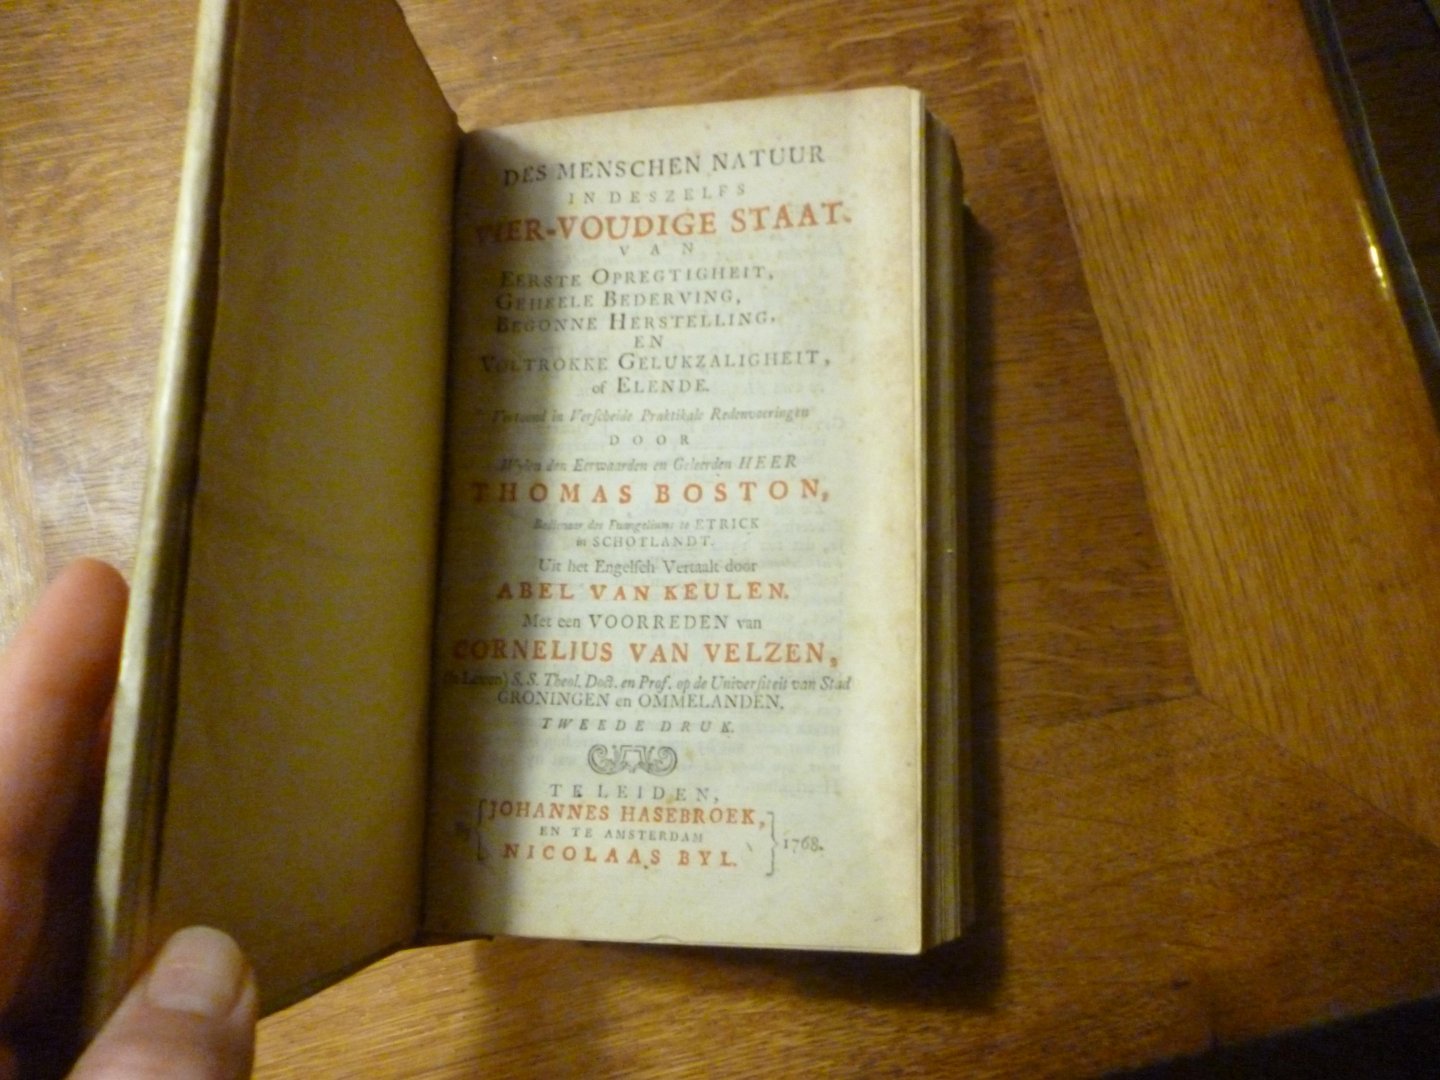 DES MENSCHEN NATUUR
IN DESZELFS
VIER-VOUDIGE STAAT.
VAN
EERSTE OPREGTIGHEIT,
GEHEELE BEDERVING,
BEGONNE HERSTELLING,
EN
VOLTROKKE GELUKZALIGHEIT,
of ELENDE.
Vertoond in Verscheide Praktikale Redenvoeringen
DOOR
Wylen den Eerwaarden en Geleerden HEER
THOMAS BOSTON,
Bedienaar des Euangeliums te ETRICK
in SCHOTLANDT.
Uit het Engelsch Vertaalt door
ABEL VAN KEULEN.
Met een VOORREDEN van
CORNELIUS VAN VELZEN,
(in Leven) S. S. Theol. Doct. en Prof. op de Universiteit van Stad
GRONINGEN en OMMELANDEN.
TWEEDE DRUK.
TE LEIDEN,
By JOHANNES HASEBROEK,
EN TE AMSTERDAM
1768.
NICOLAAS BYL.